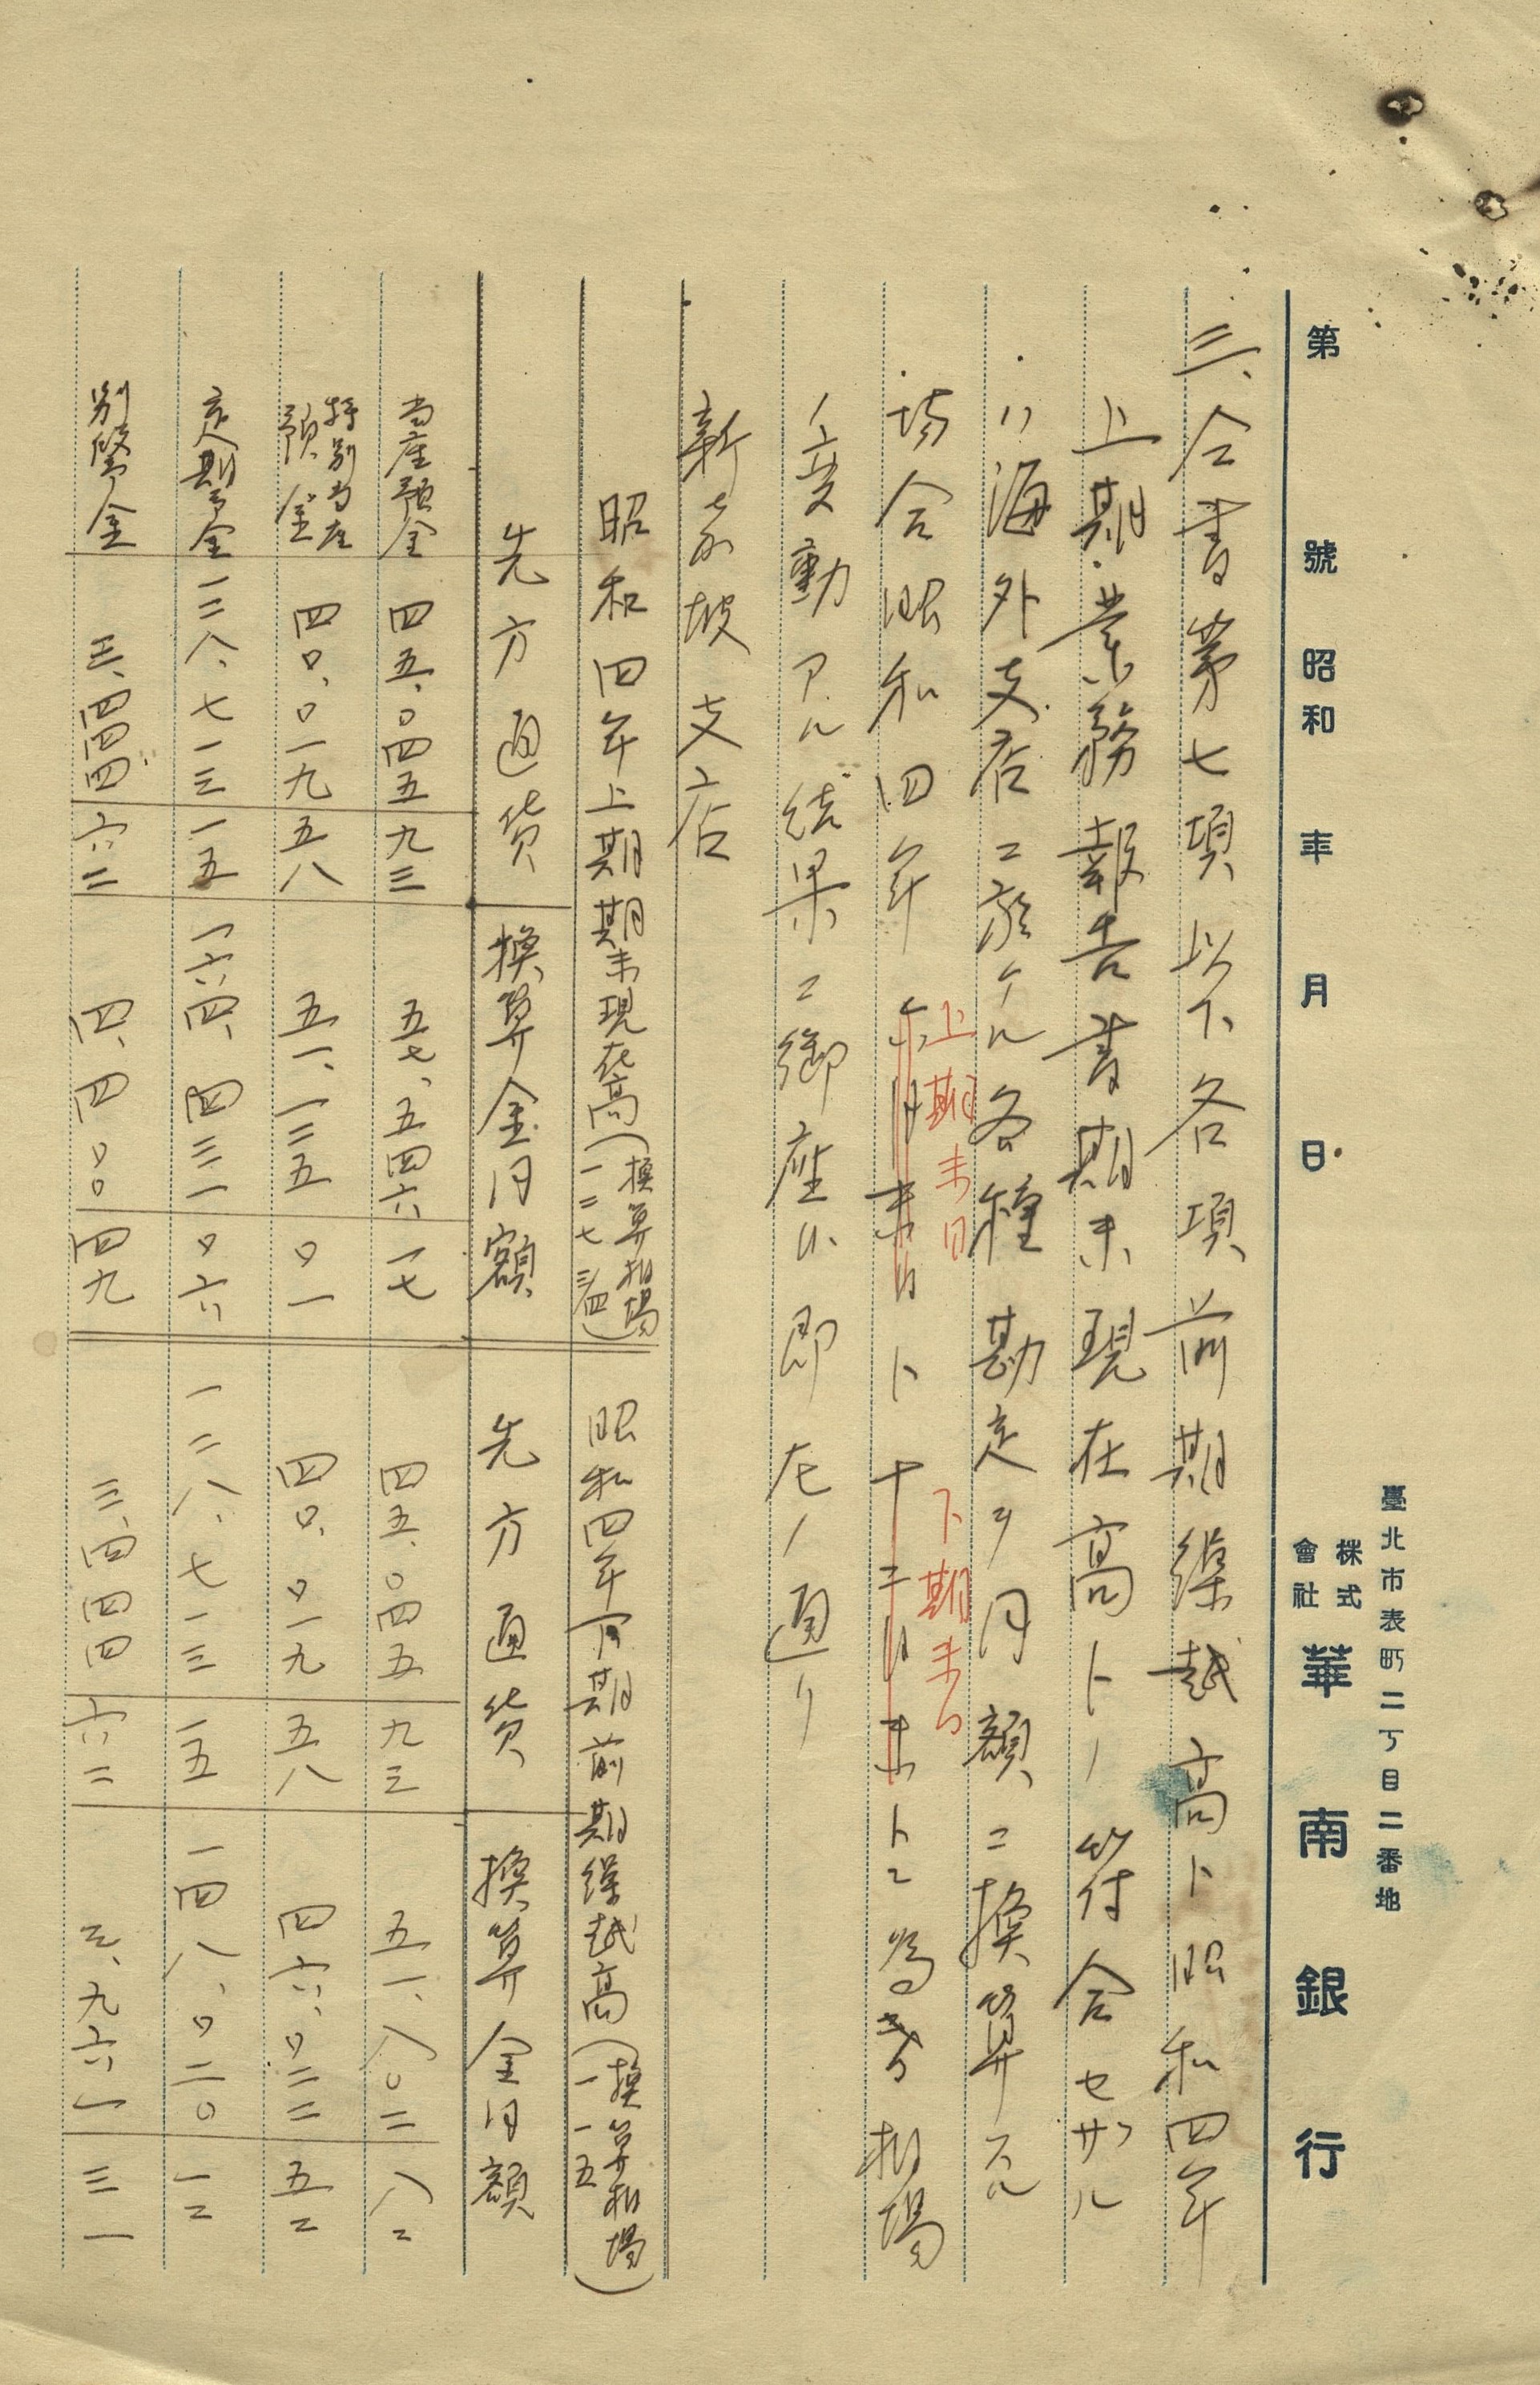 臺北市表町二丁目二番地
株式會社 華南銀行
第 號 昭和 年 月 日
三、仝書第七項以下各項前期繰越高ト昭和四年
上期業務報告書期末現在高トノ符合セザル
ハ海外支店ニ於ケル各種勘定ヲ円額ニ換算スル
場合昭和四年六月末日ト十二月末トニ為替相場
上期末日
下期末日
ノ変動アル結果ニ御座候即左ノ通リ
新嘉坡支店
昭和四年上期期末現在高(換算相場一二七 三/四)
昭和四年下期前期繰越高(換算相場一一五)
先方通貨 換算金円額 先方通貨 換算金円額
当座預金 四五、〇四五 九三 五七、五四六 一七 四五、〇四五 九三 五一、八〇二 八二
特別当座預金 四〇、〇一九 五八 五一、一二五 〇一 四〇、〇一九 五八 四六、〇二二 五二
定期預金 一二八、七一三 一五 一六四、四三一 〇六 一二八、七一三 一五 一四八、〇二〇 一二
別段預金 三、四四四 六二 四、四〇〇 四九 三、四四四 六二 三、九六一 三一